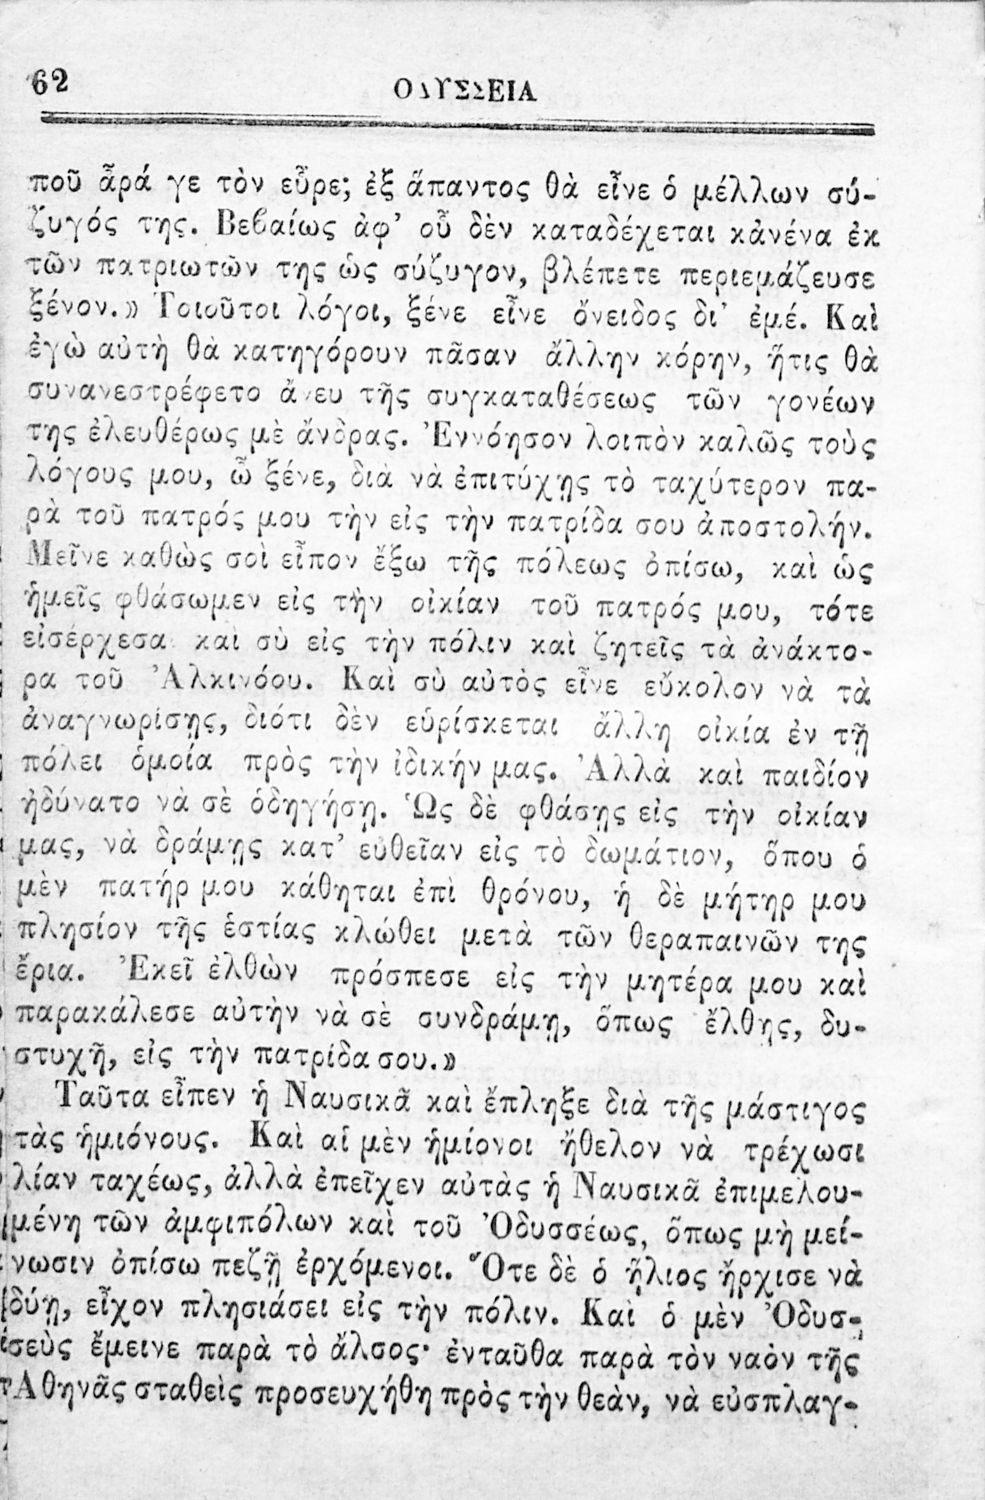 62
ΟΔΥΣΣΕΙΑ
ποῦ ἆρά γε τὸν εὗρε; ἐξ ἅπαντος θὰ εἶνε ὁ μέλλων σύ-
ζυγός της. Βεβαίως ἀφ’ οὗ δὲν καταδέχεται κἀνένα ἐκ
τῶν πατριωτῶν της ὡς σύζυγον, βλέπετε περιεμάζευσε
ξένον.» Τοιοῦτοι λόγοι, ξένε εἶνε ὄνειδος δι’ ἐμέ. Καὶ
ἐγὼ αὐτὴ θὰ κατηγόρουν πᾶσαν ἄλλην κόρην, ἥτις θὰ
συνανεστρέφετο ἄνευ τῆς συγκαταθέσεως τῶν γονέων
της ἐλευθέρως μὲ ἄνδρας. Ἐννόησον λοιπὸν καλῶς τοὺς
λόγους μου, ὦ ξένε, διὰ νὰ ἐπιτύχῃς τὸ ταχύτερον πα-
ρὰ τοῦ πατρός μου τὴν εἰς τὴν πατρίδα σου ἀποστολήν.
Μεῖνε καθὼς σοὶ εἶπον ἔξω τῆς πόλεως ὀπίσω, καὶ ὡς
ἡμεῖς φθάσωμεν εἰς τὴν οἰκίαν τοῦ πατρός μου, τότε
εἰσέρχεσαι καὶ σὺ εἰς τὴν πόλιν καὶ ζητεῖς τὰ ἀνάκτο-
ρα τοῦ Ἀλκινόου. Καὶ σὺ αὐτὸς εἶνε εὔκολον νὰ τὰ
ἀναγνωρίσῃς, διότι δὲν εὑρίσκεται ἄλλη οἰκία ἐν τῇ
πόλει ὁμοία πρὸς τὴν ἰδικήν μας. Ἀλλὰ καὶ παιδίον
ἠδύνατο νὰ σὲ ὁδηγήσῃ. Ὡς δὲ φθάσῃς εἰς τὴν οἰκίαν
μας, νὰ δράμῃς κατ’ εὐθεῖαν εἰς τὸ δωμάτιον, ὅπου ὁ
μὲν πατήρ μου κάθηται ἐπὶ θρόνου, ἡ δὲ μήτηρ μου
πλησίον τῆς ἑστίας κλώθει μετὰ τῶν θεραπαινῶν της
ἔρια. Ἐκεῖ ἐλθὼν πρόσπεσε εἰς τὴν μητέρα μου καὶ
παρακάλεσε αὐτὴν νὰ σὲ συνδράμῃ, ὅπως ἔλθῃς, δυ-
στυχῆ, εἰς τὴν πατρίδα σου.»
Ταῦτα εἶπεν ἡ Ναυσικᾶ καὶ ἔπληξε διὰ τῆς μάστιγος
τὰς ἡμιόνους. Καὶ αἱ μὲν ἡμίονοι ἤθελον νὰ τρέχωσι
λίαν ταχέως, ἀλλὰ ἐπεῖχεν αὐτὰς ἡ Ναυσικᾶ ἐπιμελου-
μένη τῶν ἀμφιπόλων καὶ τοῦ Ὀδυσσέως, ὅπως μὴ μεί-
νωσιν ὀπίσω πεζῇ ἐρχόμενοι. Ὅτε δὲ ὁ ἥλιος ἤρχισε νὰ
δύῃ, εἶχον πλησιάσει εἰς τὴν πόλιν. Καὶ ὁ μὲν Ὀδυσ-
σεὺς ἔμεινε παρὰ τὸ ἄλσος· ἐνταῦθα παρὰ τὸν ναὸν τῆς
Ἀθηνᾶς σταθεὶς προσευχήθη πρὸς τὴν θεὰν, νὰ εὐσπλαγ-